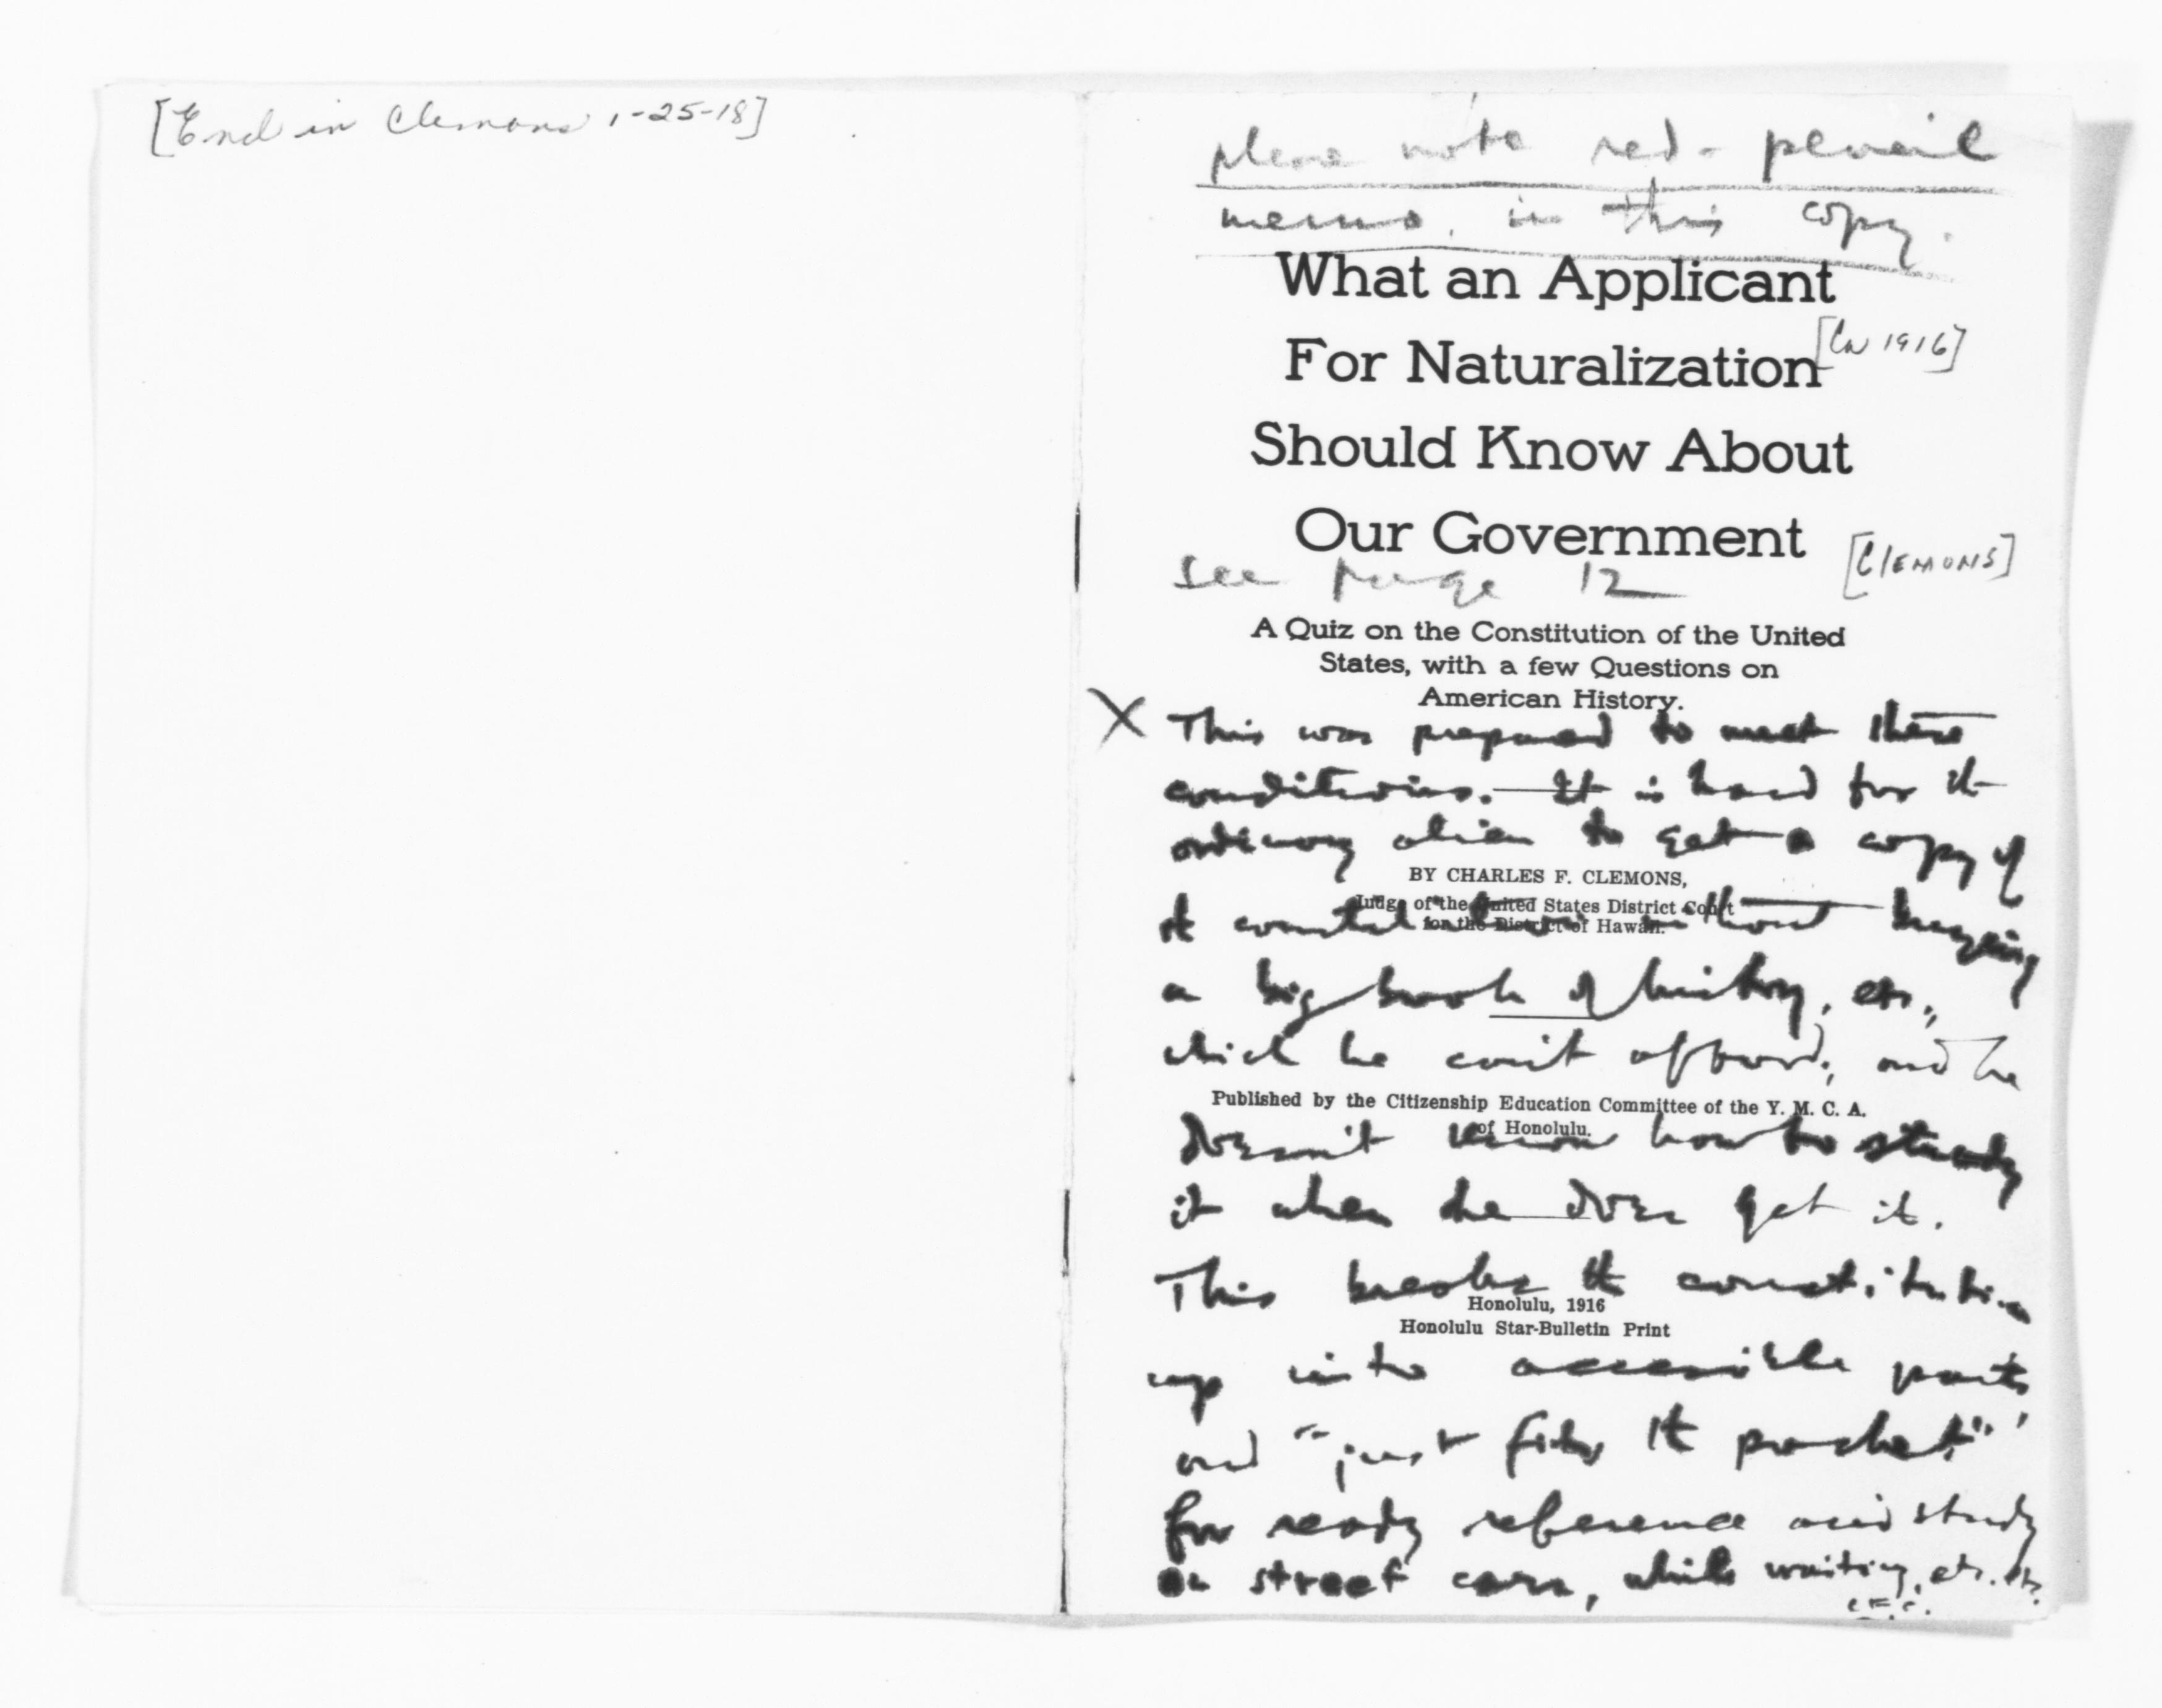 [Encl in Clemons 1-25-18]
please note red-pencil
memo. in this copy.
What an Applicant
For Naturalization
[Ca 1916]
Should Know About
Our Government
[Clemons]
See page 12
A Quiz on the Constitution of the United
States, with a few Questions on
American History.
X This was prepared to meet these
conditions. It is hard for the
ordinary alien to get a copy of
BY CHARLES F. CLEMONS,
Judge of the United States District Court
for the District of Hawaii.
the constitution without buying
a big book of history, etc.,
which he can't afford; and he
Published by the Citizenship Education Committee of the Y. M. C. A.
of Honolulu.
doesn't know how to study
it when he does get it.
This breaks the constitution
Honolulu, 1916
Honolulu Star-Bulletin Print
up into accessible parts
and "just fits the pocket",
for ready reference and study
on street cars, while waiting, etc. etc.
C.F.C.